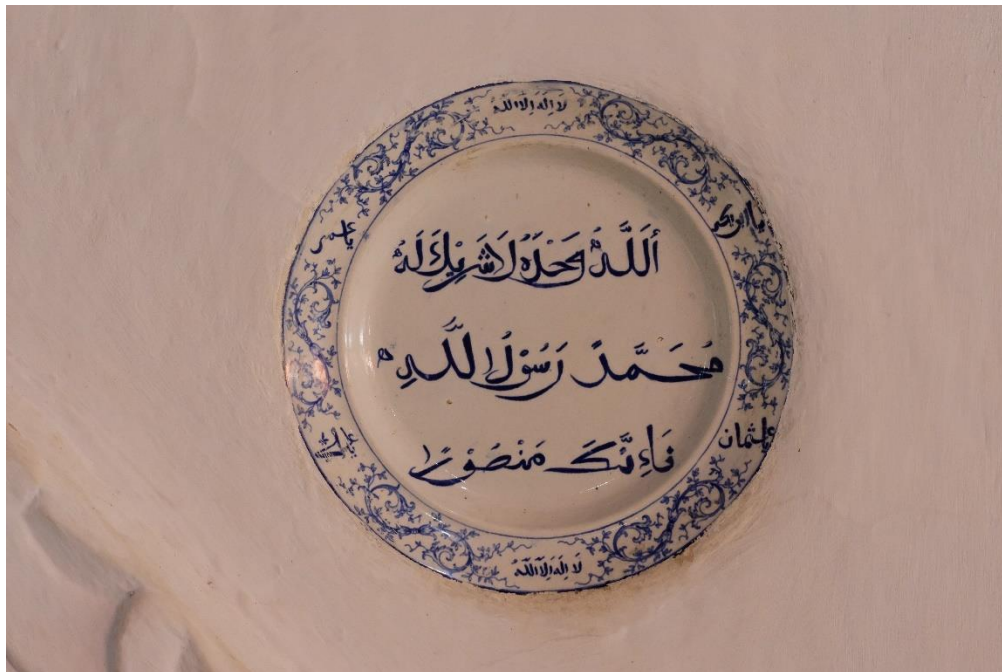 لا إله إلا الله
يا ابوبكر
يا عمر
أَللَّهُ وَحْدَهُ لَا شَرِيْكَ لَهُ
مُحَمَّدً رَسُوْلُ اللَّهِ
فَاءِنَّكَ مَنْصُوْرًا
يا عثمان
يا علي
لَا إِلَهَ إِلَّا اللَّهُ